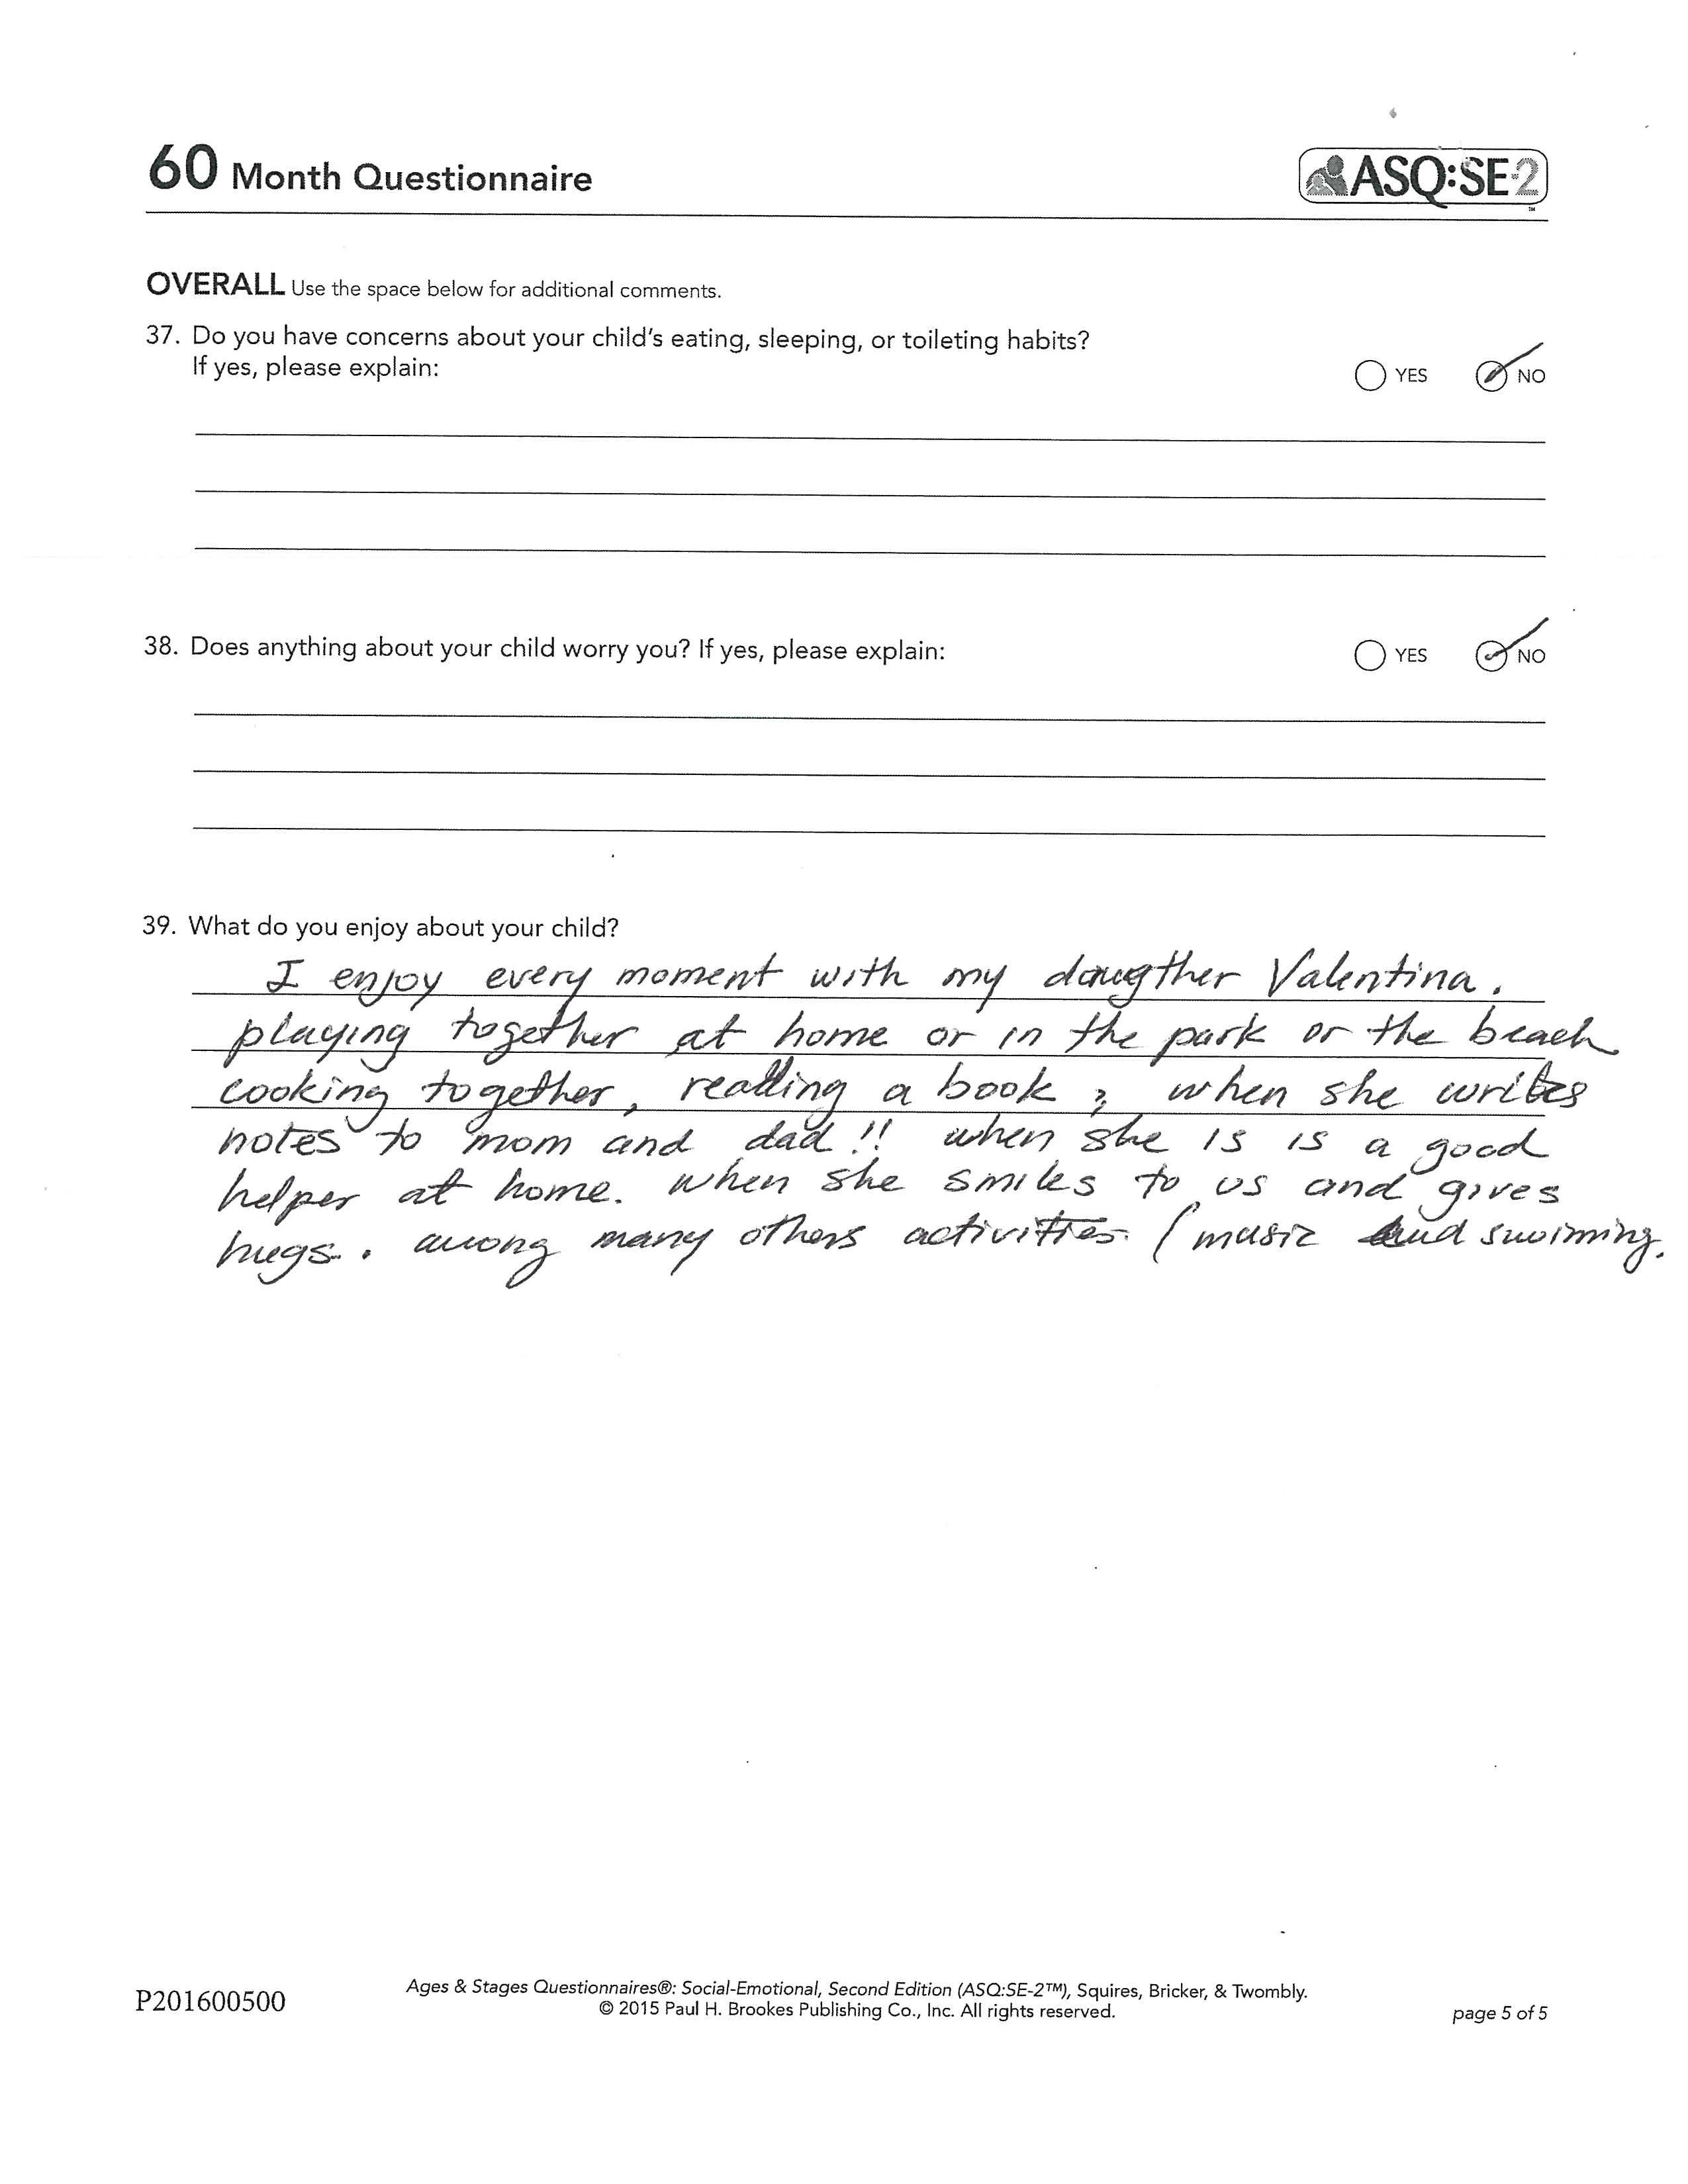 60 Month Questionnaire
ASQ:SE-2™
OVERALL Use the space below for additional comments.
37. Do you have concerns about your child's eating, sleeping, or toileting habits?
If yes, please explain:
YES NO
38. Does anything about your child worry you? If yes, please explain:
YES NO
39. What do you enjoy about your child?
I enjoy every moment with my daugther Valentina.
playing together at home or in the park or the beach
cooking together, reading a book, when she writes
notes to mom and dad!! when she is is a good
helper at home. when she smiles to us and gives
hugs. among many others activities (music and swimming.
P201600500
Ages & Stages Questionnaires®: Social-Emotional, Second Edition (ASQ:SE-2™), Squires, Bricker, & Twombly.
© 2015 Paul H. Brookes Publishing Co., Inc. All rights reserved.
page 5 of 5